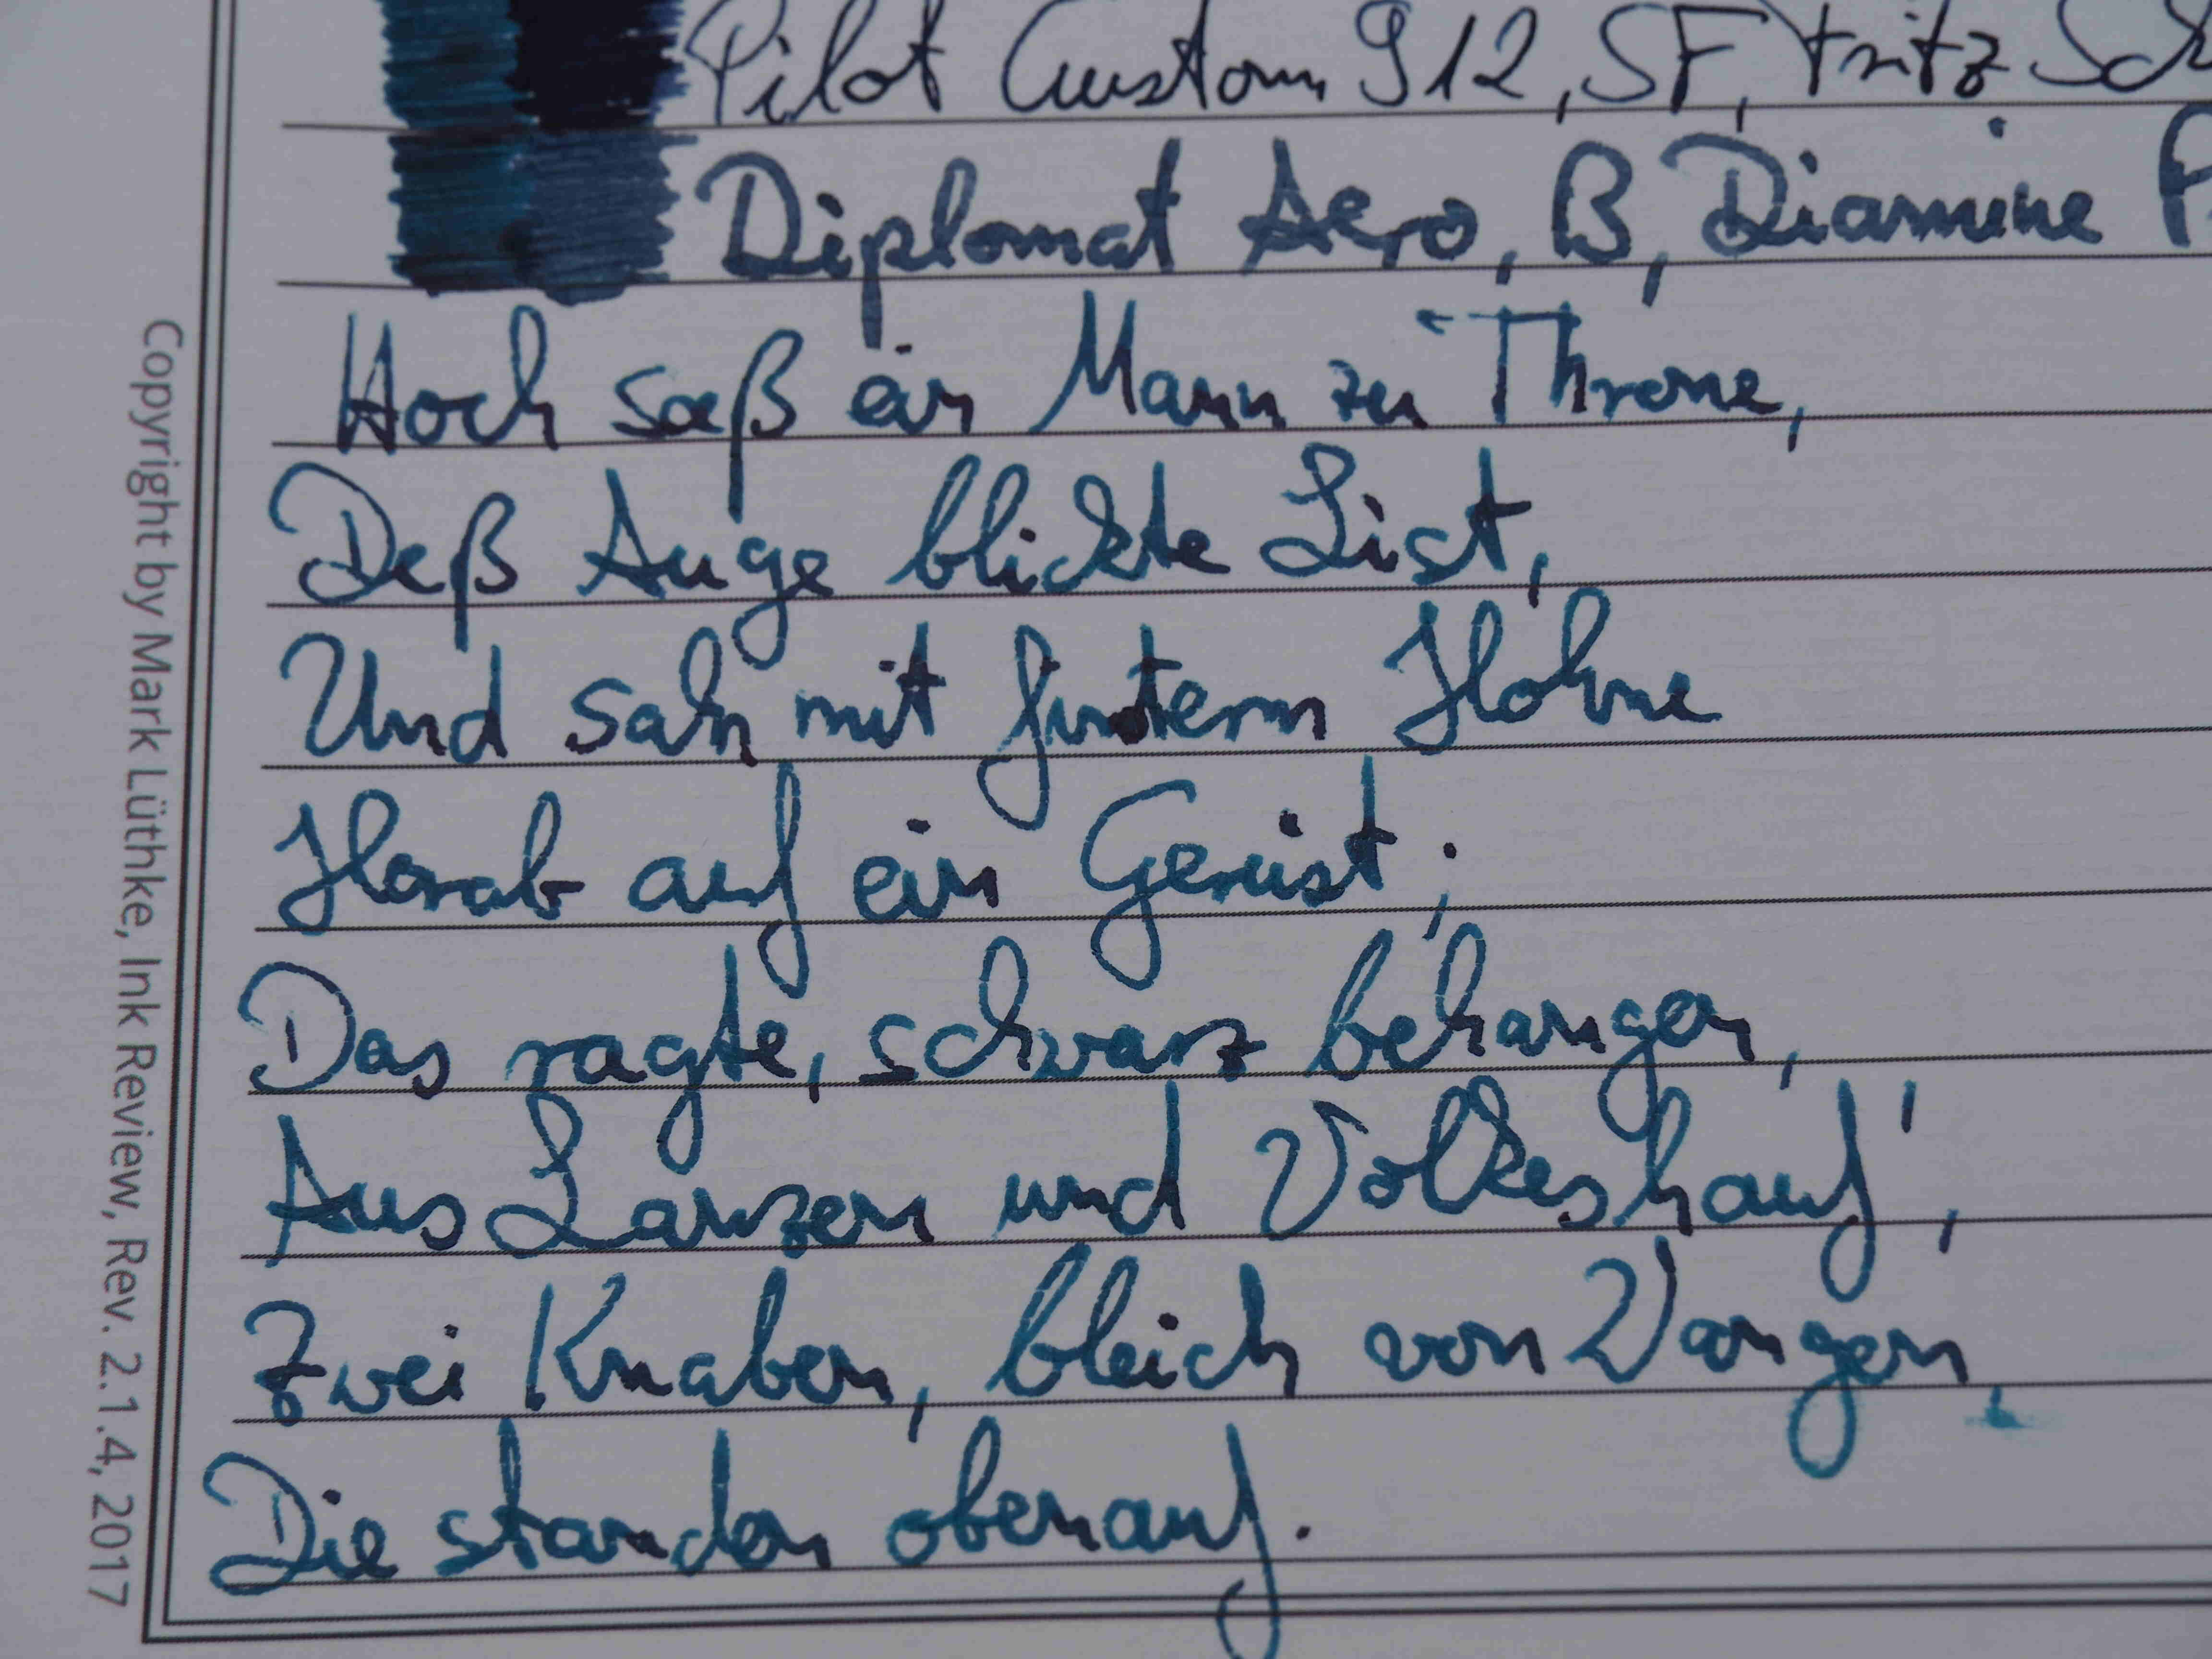 Pilot Custom 912, SF, Fritz
Diplomat Aero, B, Diamine
Hoch saß ein Mann zu Throne,
Deß Auge blickte List,
Und sah mit finterm Hohne
Herab auf ein Gerüst;
Das ragte, schwarz behangen,
Aus Lanzen und Volkeshauf',
Zwei Knaben, bleich von Wangen,
Die standen obenauf.
Copyright by Mark Lüthke, Ink Review, Rev. 2.1.4, 2017